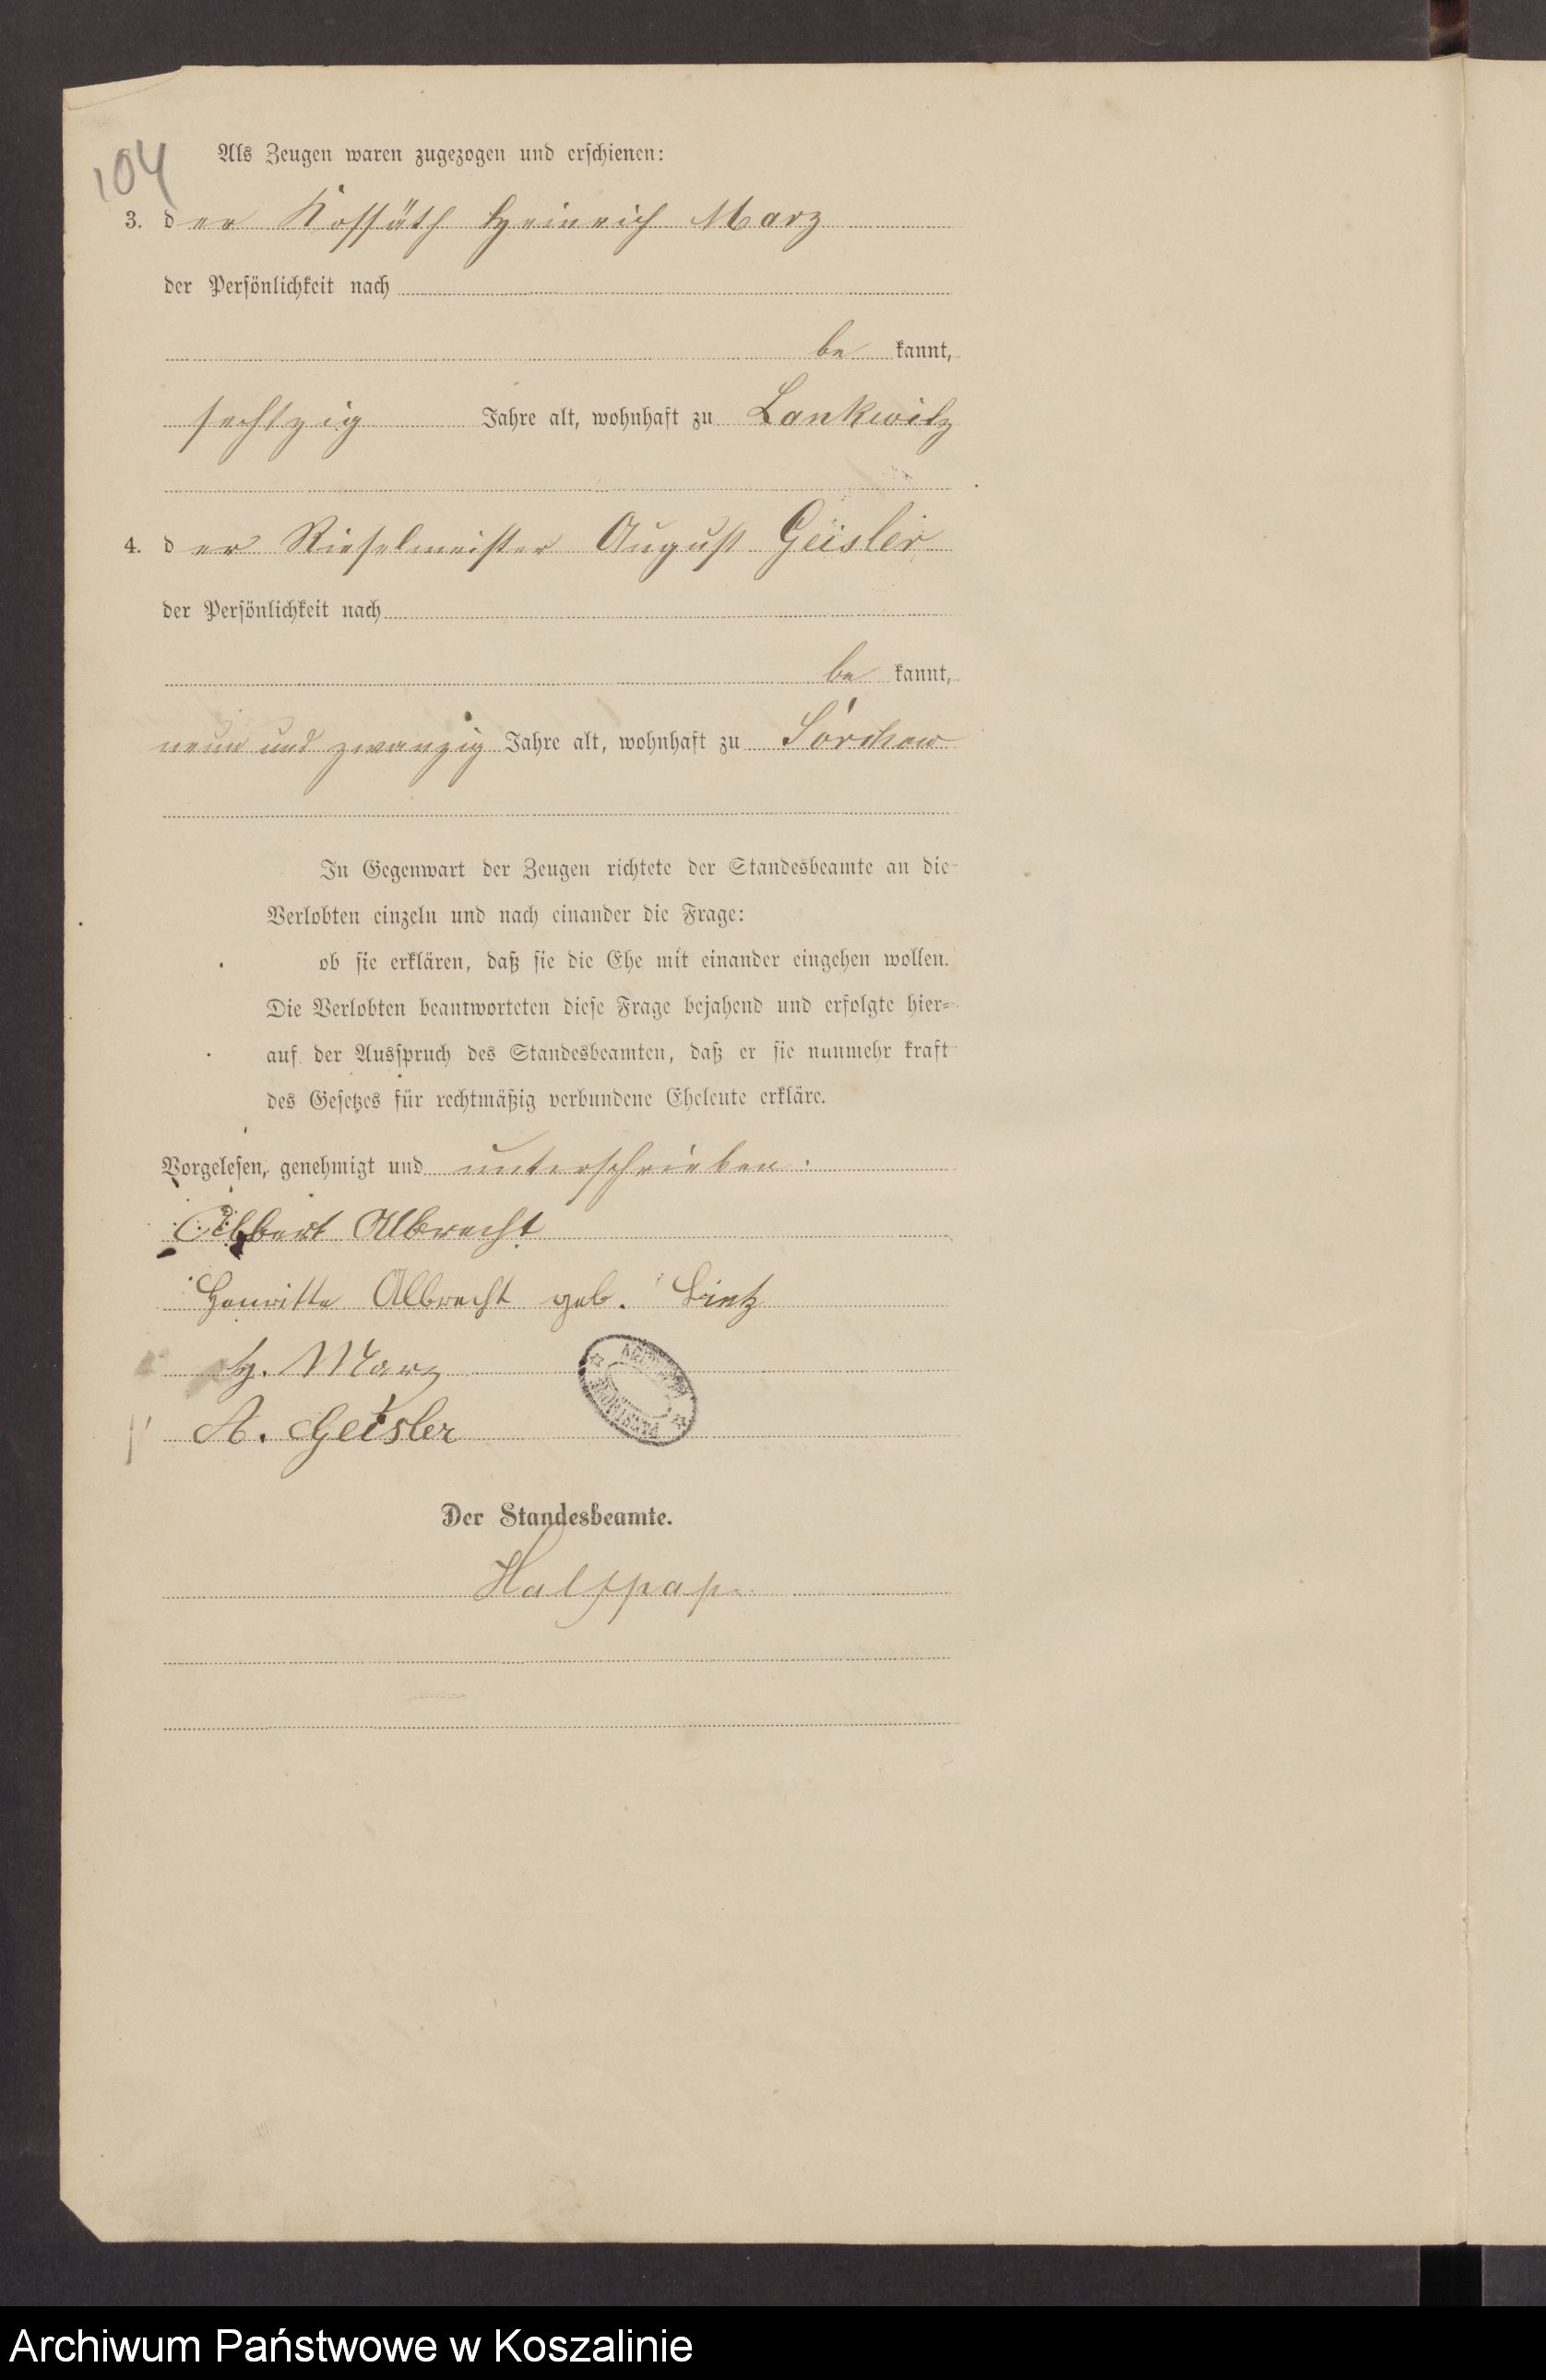 104
Als Zeugen waren zugezogen und erschienen:
3. der Kossäth Heinrich Marz
der Persönlichkeit nach
be kannt,
sechszig Jahre alt, wohnhaft zu Lankwitz
4. der Rieselmeister August Geisler
der Persönlichkeit nach
be kannt,
neun und zwanzig Jahre alt, wohnhaft zu Sorchow
In Gegenwart der Zeugen richtete der Standesbeamte an die
Verlobten einzeln und nach einander die Frage:
ob sie erklären, daß sie die Ehe mit einander eingehen wollen.
Die Verlobten beantworteten diese Frage bejahend und erfolgte hier-
auf der Ausspruch des Standesbeamten, daß er sie nunmehr kraft
des Gesetzes für rechtmäßig verbundene Eheleute erkläre.
Vorgelesen, genehmigt und unterschrieben.
Albert Albrecht
Henritte Albrecht geb. Lietz
H. Marz
A. Geisler
Der Standesbeamte.
Halfpap.
Archiwum Państwowe w Koszalinie